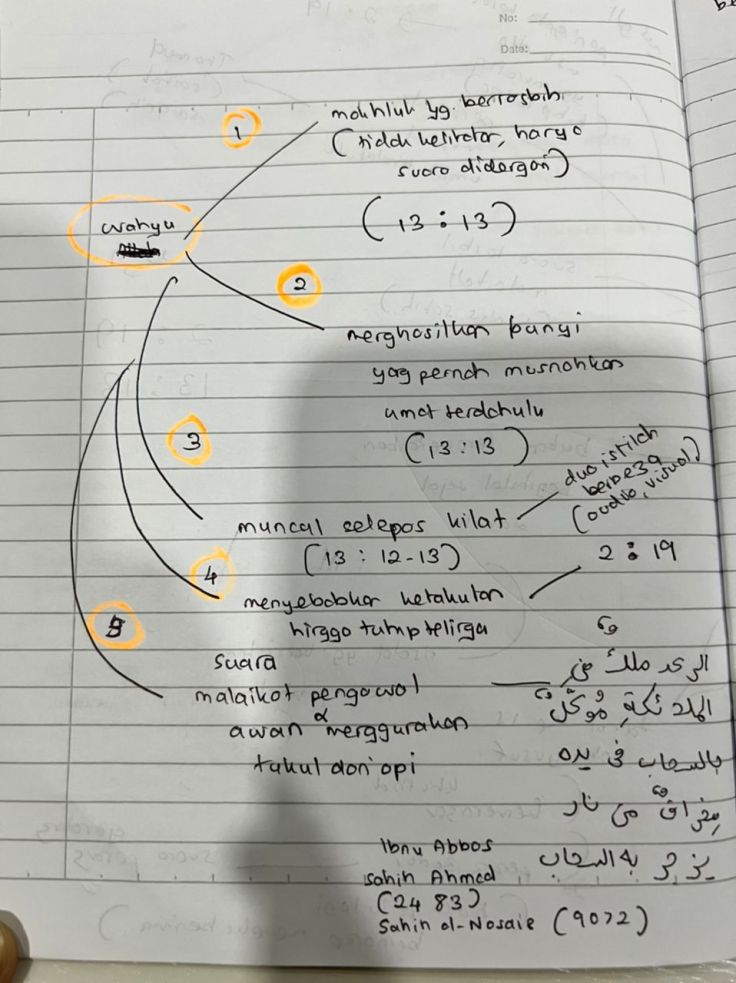 No:
Date:
1
makhluk yg. bertasbih
(tidak kelihatan, hanya
suara didengari)
(13 : 13)
wahyu
2
menghasilkan bunyi
yang pernah musnahkan
umat terdahulu
(13 : 13)
3
muncul selepas kilat
(13 : 12-13)
dua istilah
berbeza
(audio, visual)
4
menyebabkan ketakutan
hingga tutup telinga
2 : 19
5
suara
malaikat pengawal
awan & menggunakan
tukul dari api
الرعد ملك من
الملائكة موكل
بالسحاب في يده
مخراق من نار
يزجر به السحاب
Ibnu Abbas
Sahih Ahmad
(2483)
Sahih al-Nasaie (9072)